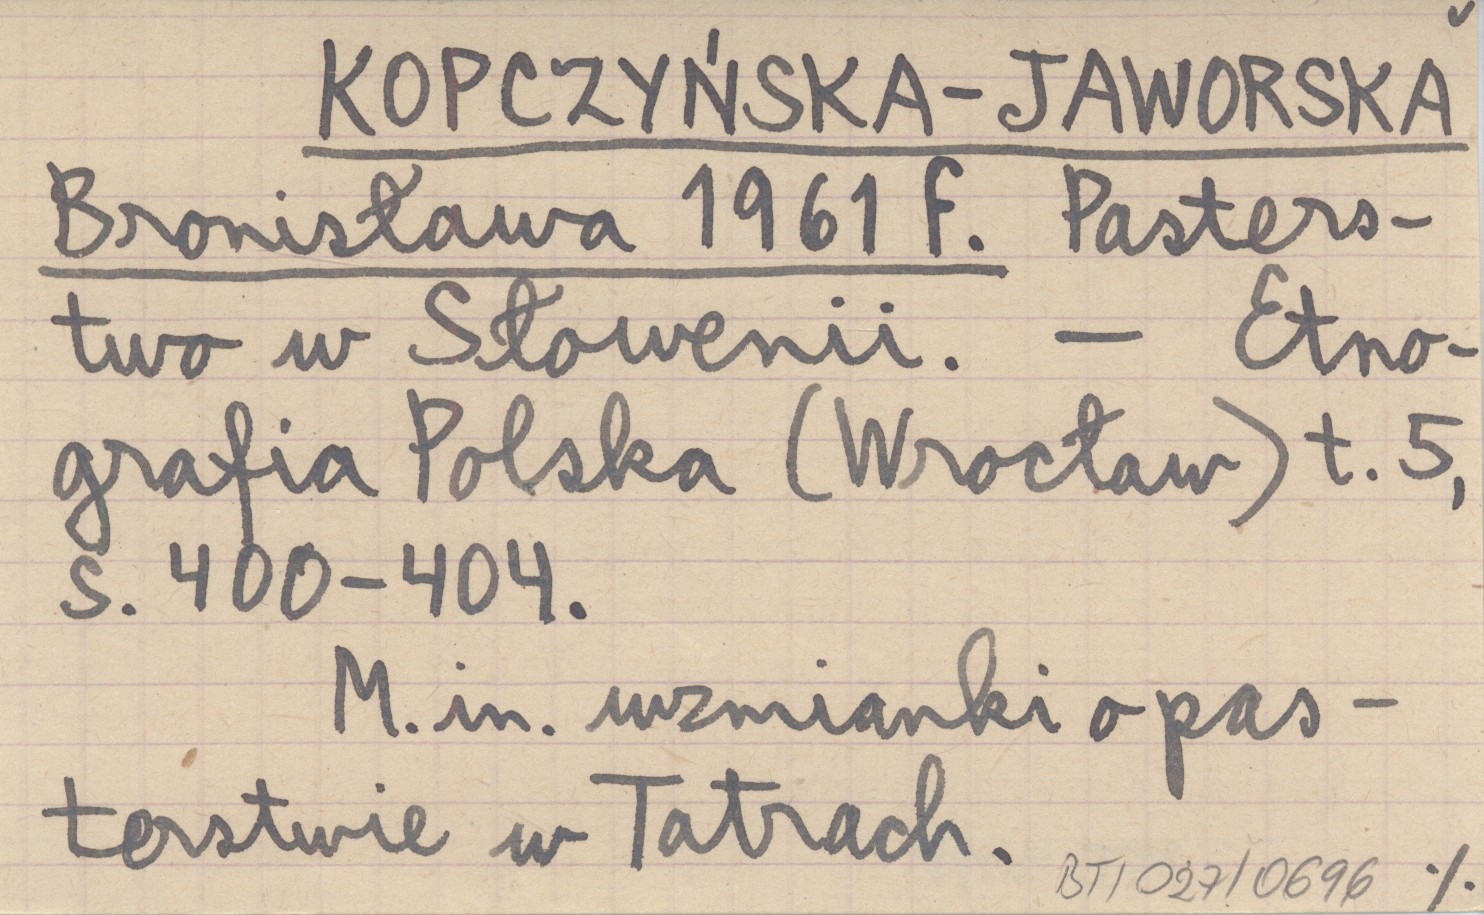 KOPCZYŃSKA-JAWORSKA
Bronisława 1961 f. Pasters-
two w Słowenii. — Etno-
grafia Polska (Wrocław) t. 5,
s. 400-404.
M. in. wzmianki o pas-
terstwie w Tatrach.
BT/027/0696 ./.